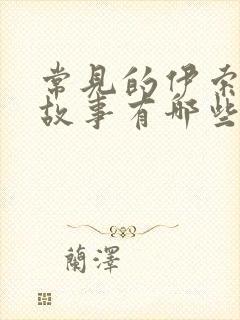 常見的伊索
故事有哪些
蘭澤